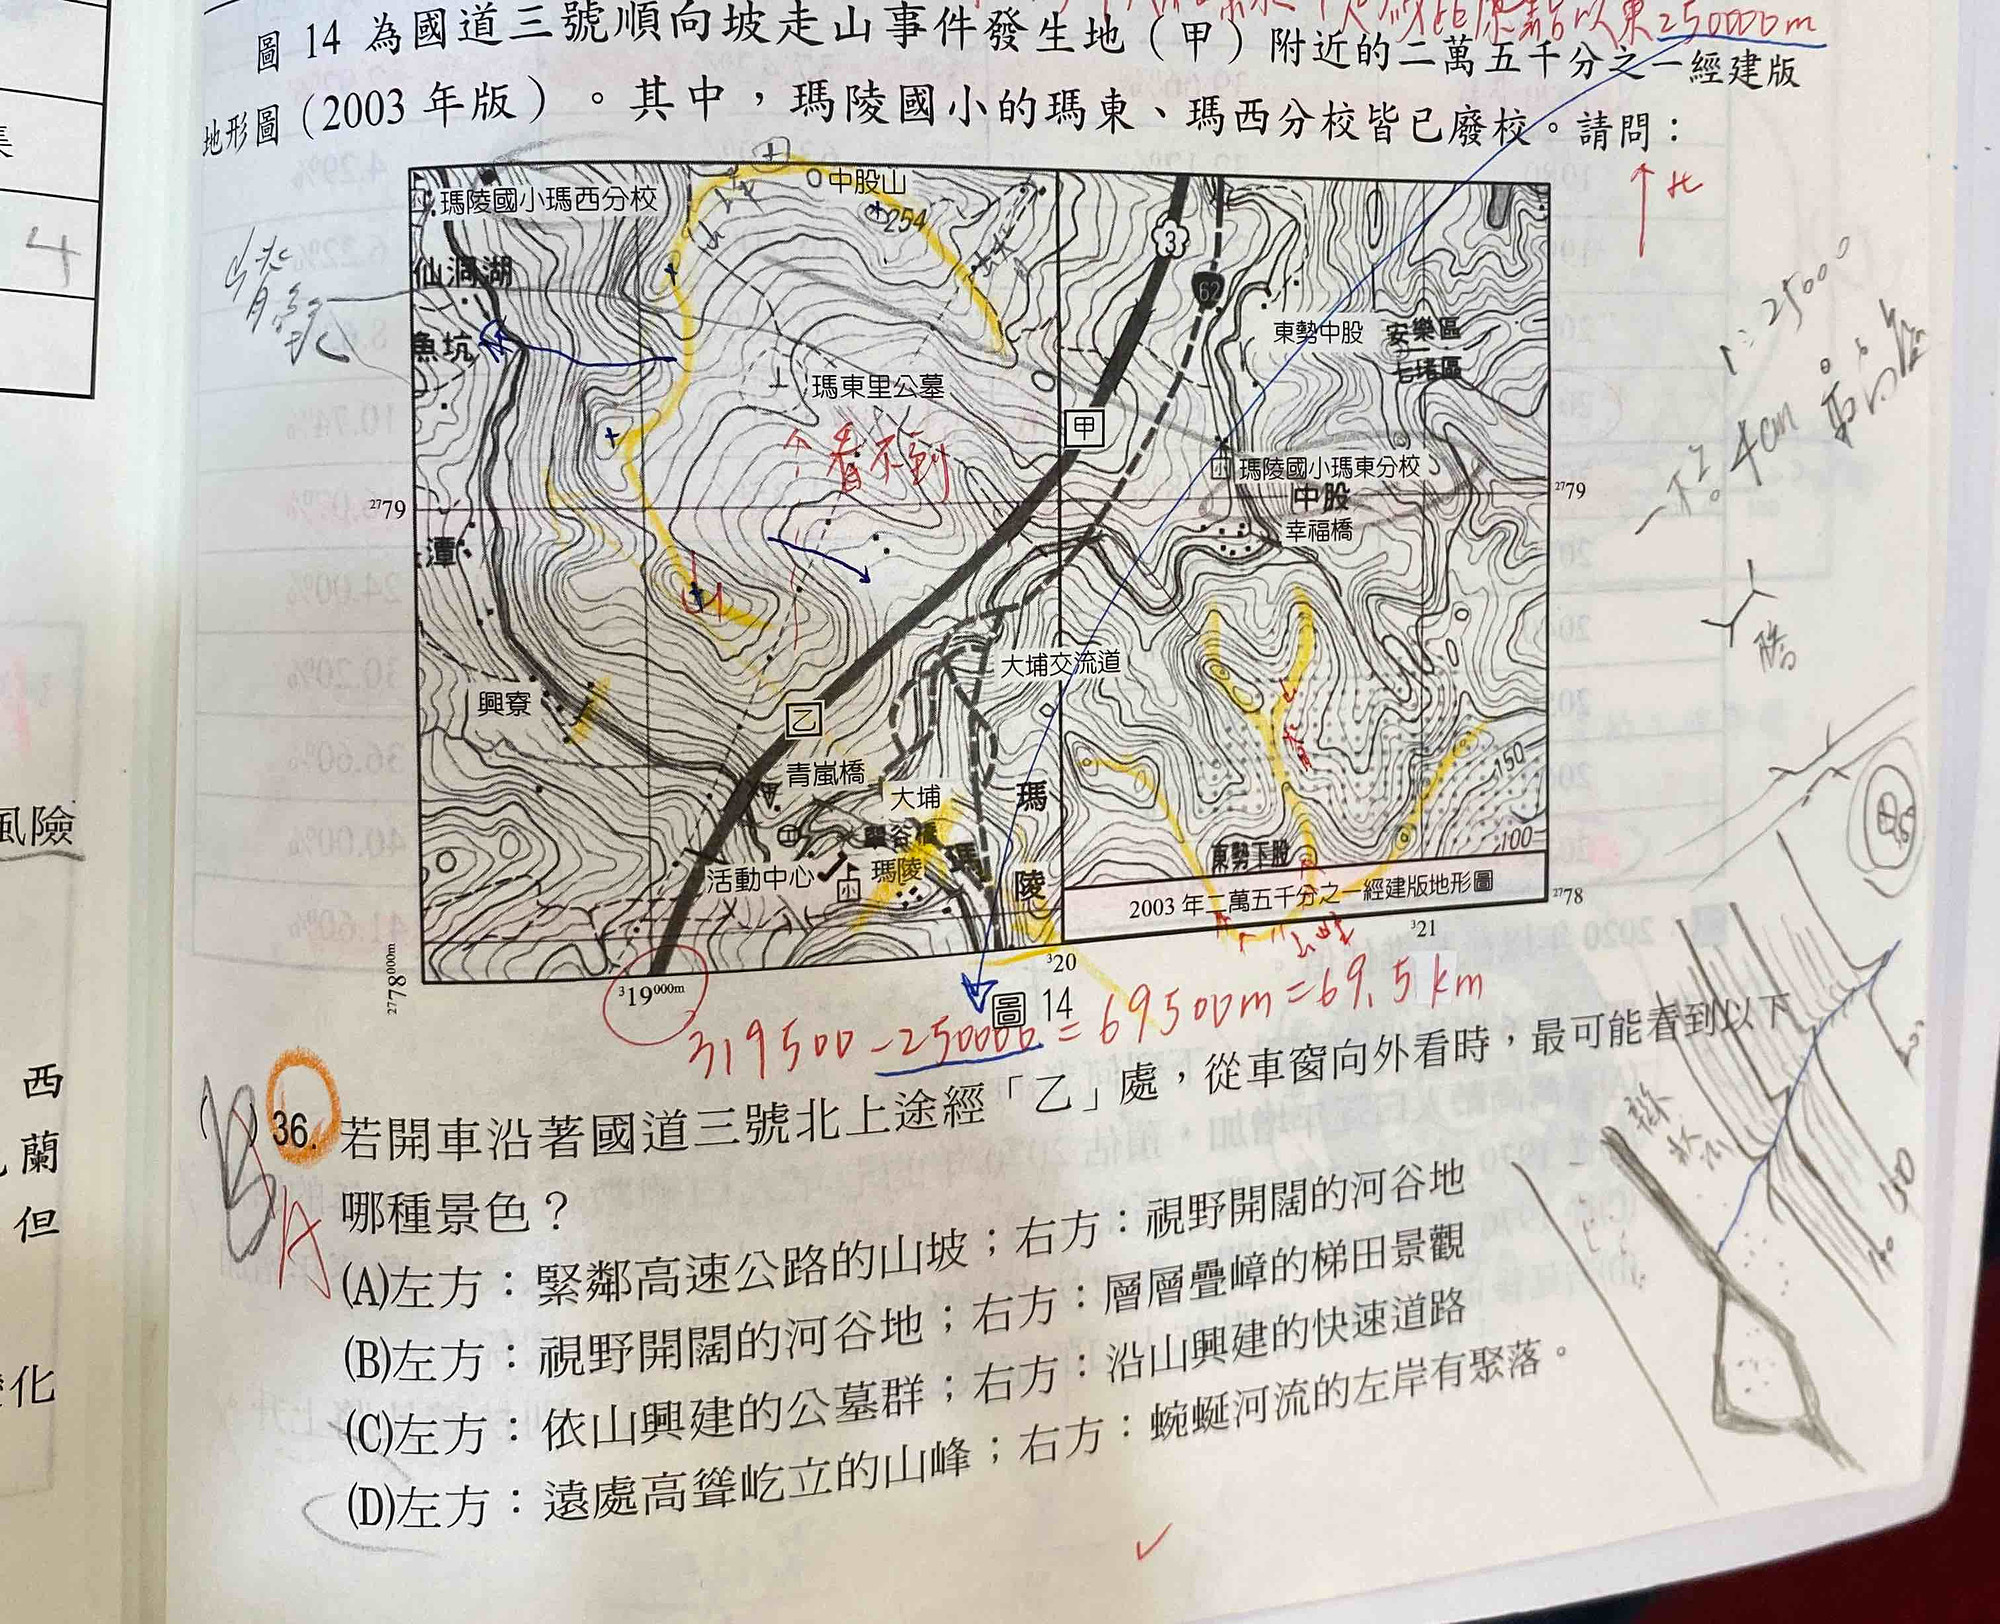 圖 14 為國道三號順向坡走山事件發生地（甲）附近的二萬五千分之一經建版
地形圖（2003 年版）。其中，瑪陵國小的瑪東、瑪西分校皆已廢校。請問：
以東250000m
北
4
瑪陵國小瑪西分校
中股山
254
3
62
仙洞湖
魚坑
東勢中股
安樂區
七堵區
瑪東里公墓
看不到
甲
小
瑪陵國小瑪東分校
中股
幸福橋
2779
2779
潭
大埔交流道
興寮
乙
青嵐橋
大埔
瑪
陵
150
100
瑪陵
瑪
活動中心
小
東勢下股
2003 年二萬五千分之一經建版地形圖
2778
2778000m
319000m
320
321
圖 14
319500-250000=69500m=69.5km
1:25000
4cm
風險
西
蘭
但
化
B
A
36. 若開車沿著國道三號北上途經「乙」處，從車窗向外看時，最可能看到以下
哪種景色？
(A)左方：緊鄰高速公路的山坡；右方：視野開闊的河谷地
(B)左方：視野開闊的河谷地；右方：層層疊嶂的梯田景觀
(C)左方：依山興建的公墓群；右方：沿山興建的快速道路
(D)左方：遠處高聳屹立的山峰；右方：蜿蜒河流的左岸有聚落。